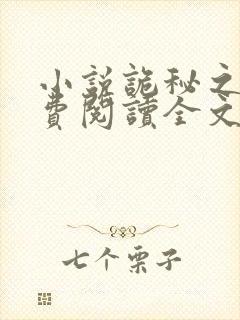 小説詭秘之
費閱讀全文
七个栗子